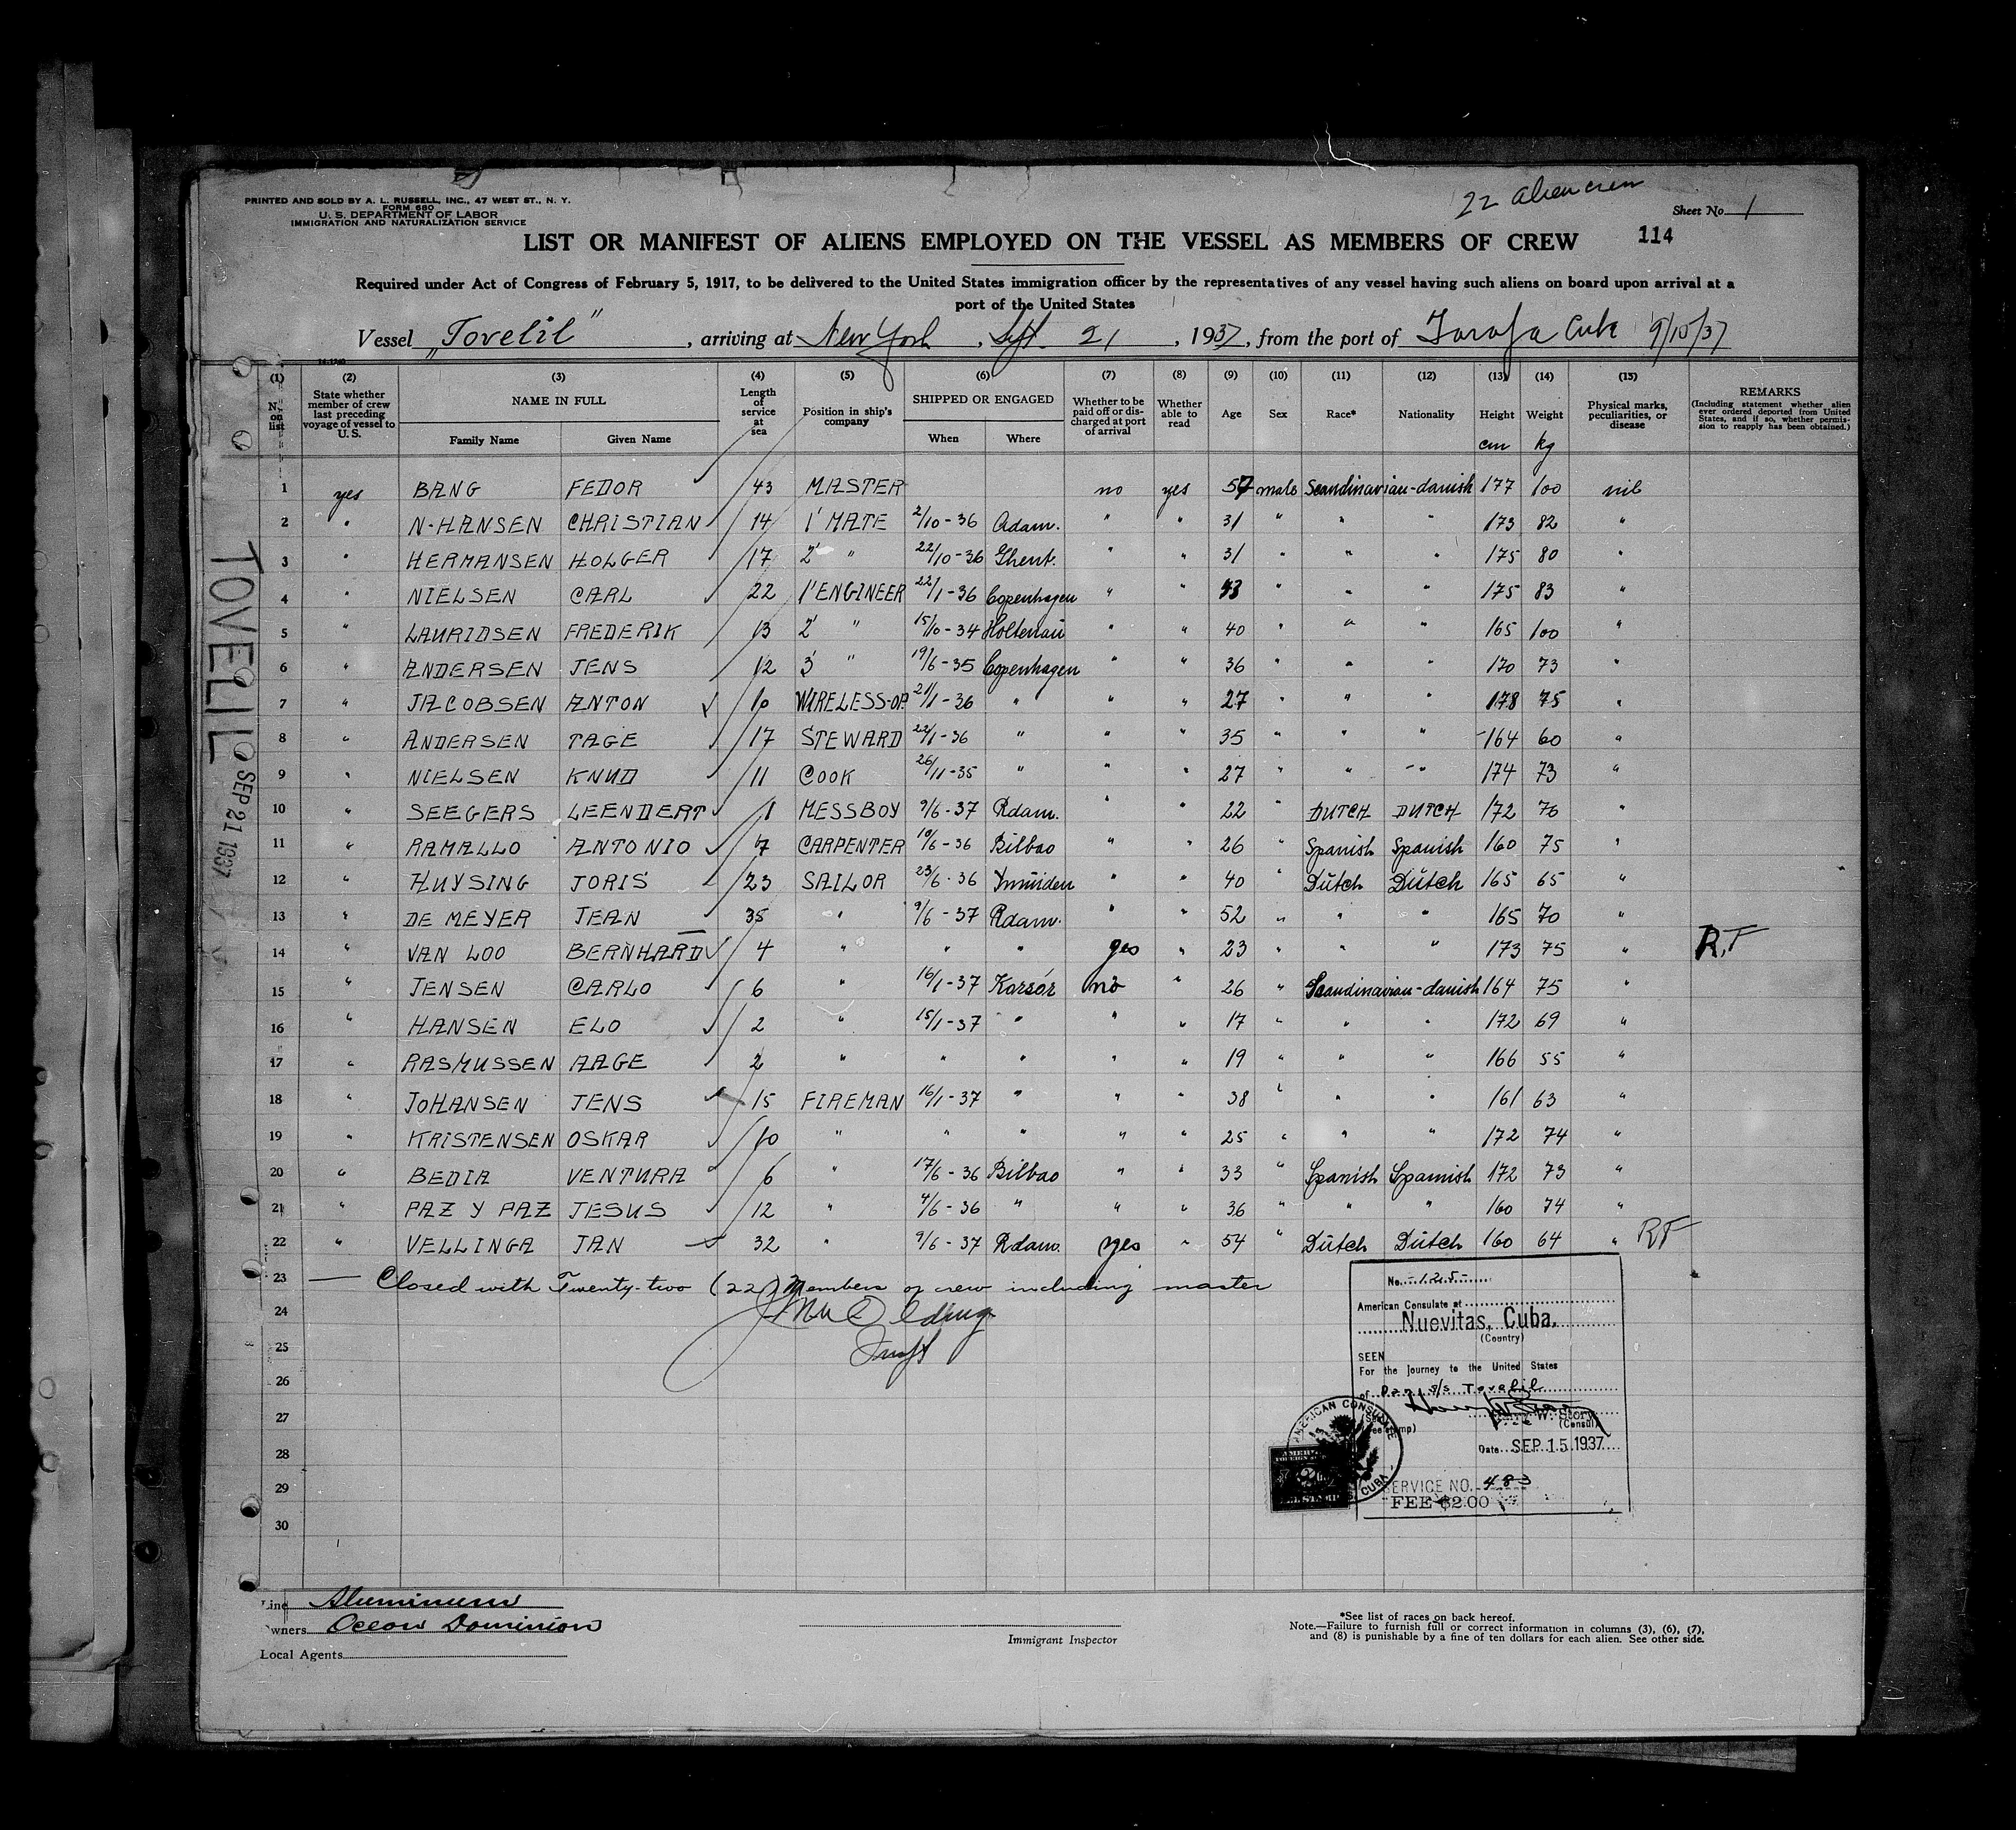 22 Alien crew
PRINTED AND SOLD BY A. L. RUSSELL, INC., 47 WEST ST., N. Y.
FORM 680
U. S. DEPARTMENT OF LABOR
IMMIGRATION AND NATURALIZATION SERVICE
Sheet No. 1
LIST OR MANIFEST OF ALIENS EMPLOYED ON THE VESSEL AS MEMBERS OF CREW 114
Required under Act of Congress of February 5, 1917, to be delivered to the United States immigration officer by the representatives of any vessel having such aliens on board upon arrival at a
port of the United States
Vessel „Tovelil", arriving at New York, Sept. 21, 1937, from the port of Tarafa Cuba 9/15/37
(1) No. on list
(2) State whether member of crew last preceding voyage of vessel to U. S.
(3) NAME IN FULL Family Name Given Name
(4) Length of service at sea
(5) Position in ship's company
(6) SHIPPED OR ENGAGED When Where
(7) Whether to be paid off or discharged at port of arrival
(8) Whether able to read
(9) Age
(10) Sex
(11) Race*
(12) Nationality
(13) Height cm
(14) Weight kg
(15) Physical marks, peculiarities, or disease
REMARKS (Including statement whether alien ever ordered deported from United States, and if so, whether permission to reapply has been obtained.)
1 yes BANG FEDOR 43 MASTER no yes 57 male Scandinavian-danish 177 100 nil
2 " N-HANSEN CHRISTIAN 14 1' MATE 2/10-36 Adam. " " 31 " " " 173 82 "
3 " HERMANSEN HOLGER 17 2' " 22/10-36 Ghent. " " 31 " " " 175 80 "
4 " NIELSEN CARL 22 1' ENGINEER 22/1-36 Copenhagen " " 43 " " " 175 83 "
5 " LAURIDSEN FREDERIK 13 2' " 15/10-34 Holtenau " " 40 " " " 165 100 "
6 " ANDERSEN JENS 12 3' " 19/6-35 Copenhagen " " 36 " " " 170 73 "
7 " JACOBSEN ANTON 10 WIRELESS-OP. 21/1-36 " " " 27 " " " 178 75 "
8 " ANDERSEN TAGE 17 STEWARD 22/1-36 " " " 35 " " " 164 60 "
9 " NIELSEN KNUD 11 COOK 26/11-35 " " " 27 " " " 174 73 "
10 " SEEGERS LEENDERT 1 MESSBOY 9/6-37 Rdam. " " 22 " DUTCH DUTCH 172 70 "
11 " RAMALLO ANTONIO 7 CARPENTER 19/6-36 Bilbao " " 26 " Spanish Spanish 160 75 "
12 " HUYSING JORIS 23 SAILOR 23/6-36 Ymuiden " " 40 " Dutch Dutch 165 65 "
13 " DE MEYER JEAN 35 " 9/6-37 Rdam. " " 52 " " " 165 70 "
14 " VAN LOO BERNHARD 4 " " " yes " 23 " " " 173 75 " R.F
15 " JENSEN CARLO 6 " 16/1-37 Korsør no " 26 " Scandinavian-danish 164 75 "
16 " HANSEN ELO 2 " 15/1-37 " " " 17 " " " 172 69 "
17 " RASMUSSEN AAGE 2 " " " " " 19 " " " 166 55 "
18 " JOHANSEN JENS 15 FIREMAN 16/1-37 " " " 38 " " " 161 63 "
19 " KRISTENSEN OSKAR 10 " " " " " 25 " " " 172 74 "
20 " BEDIA VENTURA 6 " 17/6-36 Bilbao " " 33 " Spanish Spanish 172 73 "
21 " PAZ Y PAZ JESUS 12 " 4/6-36 " " " 36 " " " 160 74 "
22 " VELLINGA JAN 32 " 9/6-37 Rdam. yes " 54 " Dutch Dutch 160 64 " RF
23 Closed with Twenty-two (22) Members of crew including master
24
25
26
27
28
29
30
No. -125-
American Consulate at
Nuevitas, Cuba.
(Country)
SEEN
For the journey to the United States
of Dan s/s Tovelil
Harry W. Story
(Consul)
Date SEP 15 1937
SERVICE NO. 483
FEE $2.00
AMERICAN CONSULATE
CUBA
TOVELIL
SEP 21 1937
Line Aluminum
Owners Ocean Dominion
Local Agents
Immigrant Inspector
*See list of races on back hereof.
Note.—Failure to furnish full or correct information in columns (3), (6), (7),
and (8) is punishable by a fine of ten dollars for each alien. See other side.